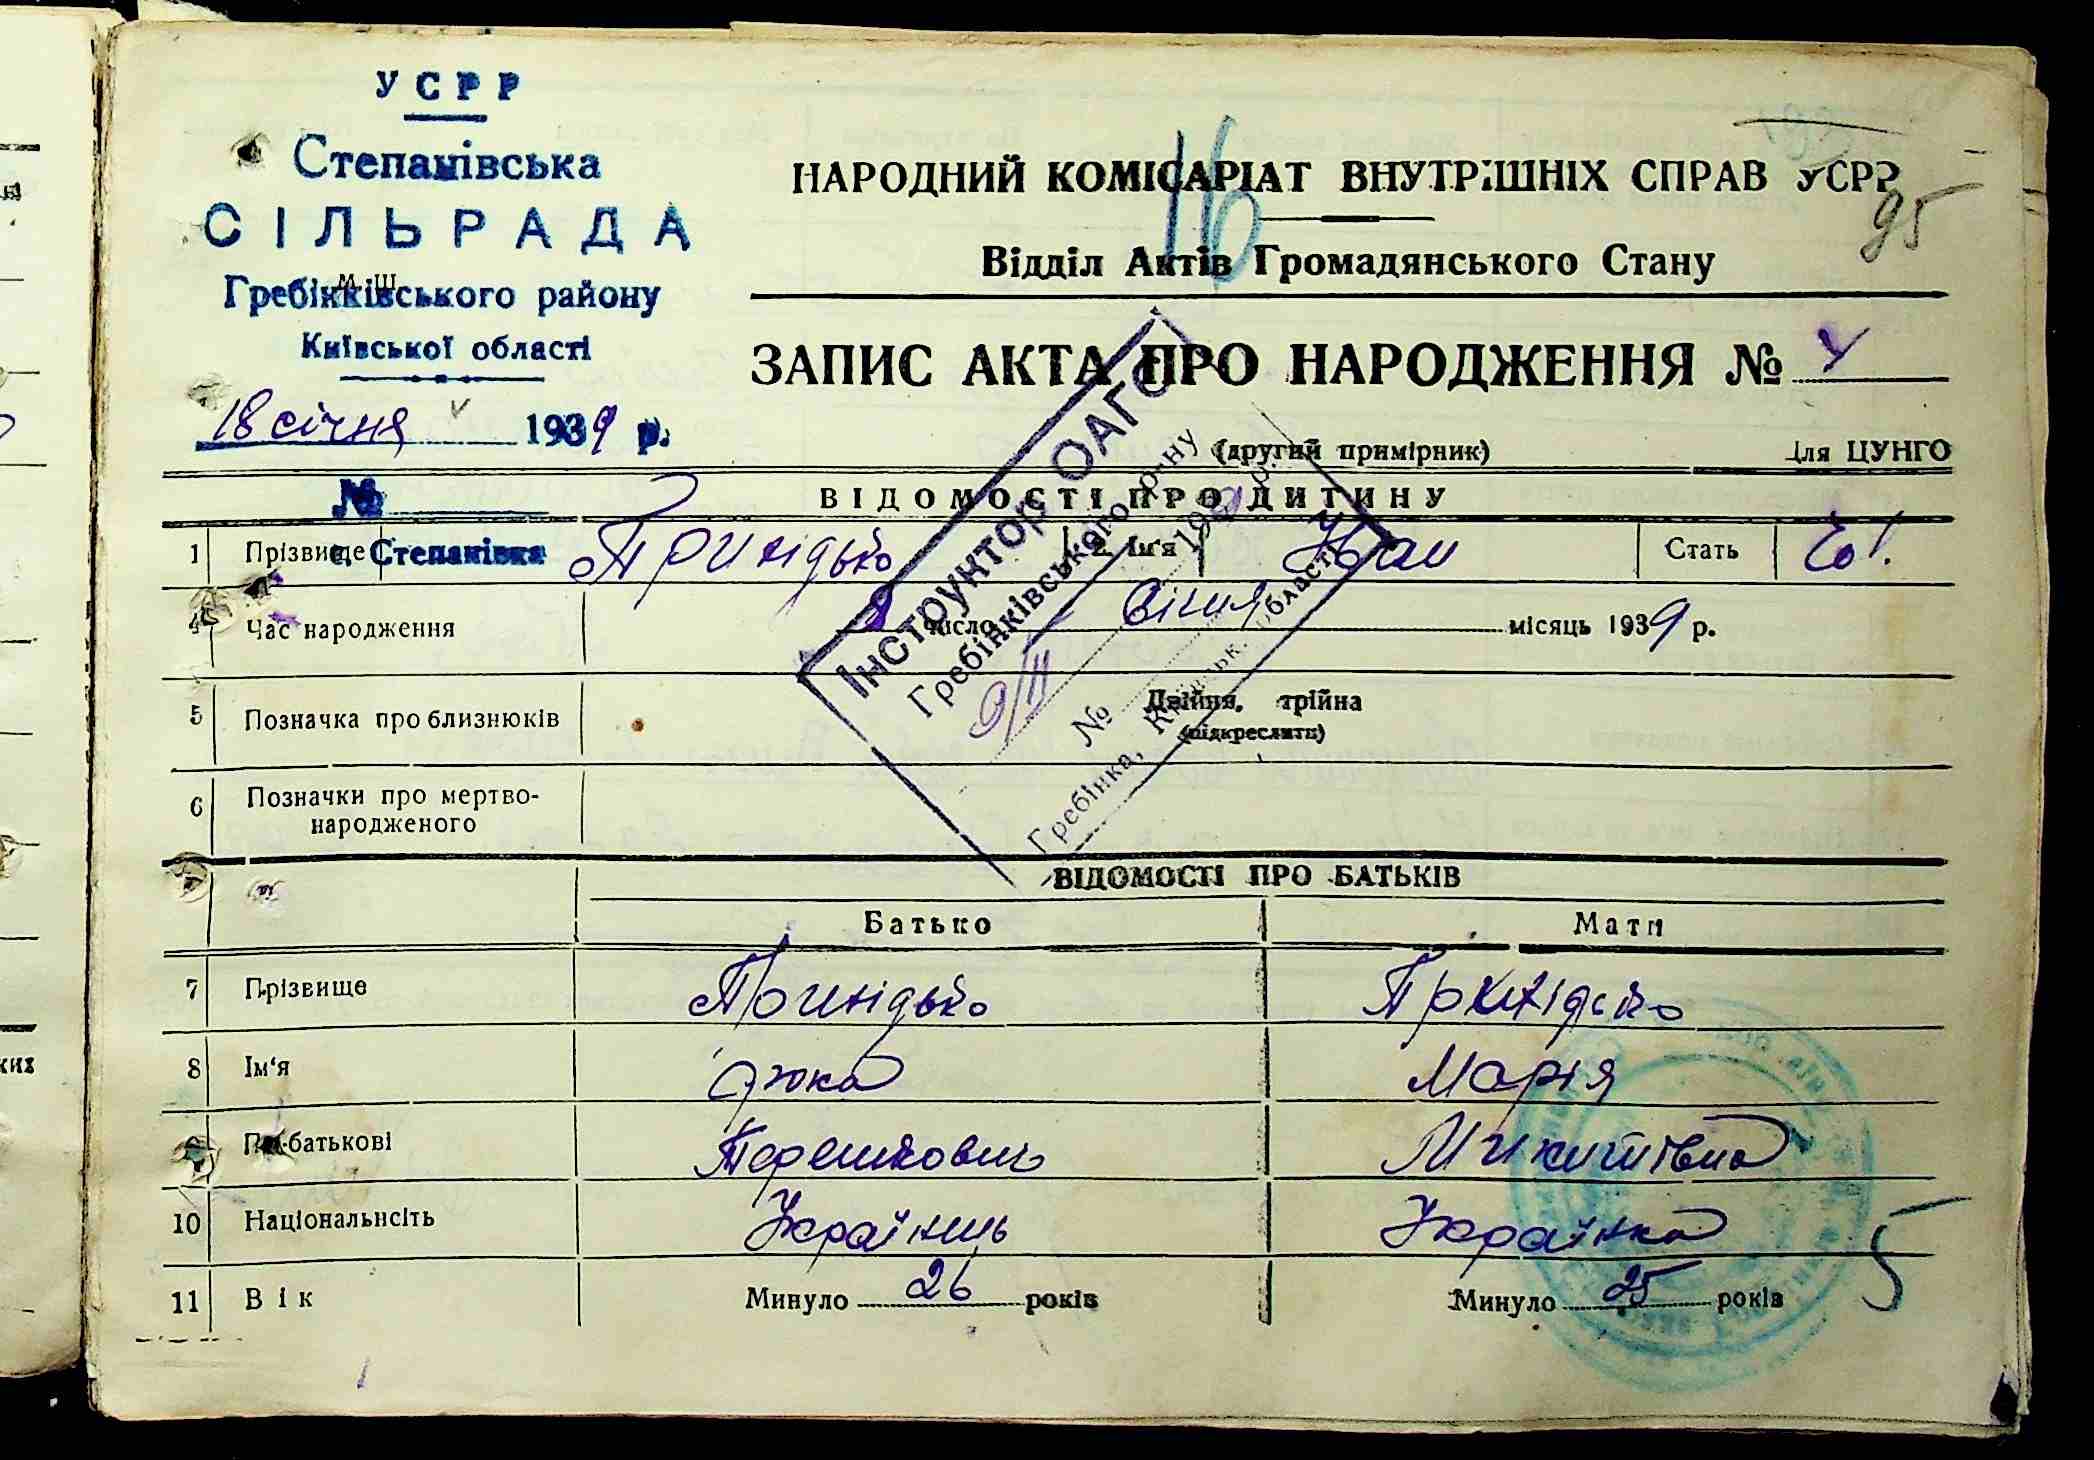 УСРР
Степанівська
СІЛЬРАДА
Гребінківського району
Київської області
18 січня 1939 р.
№
с. Степанівка
НАРОДНИЙ КОМІСАРІАТ ВНУТРІШНІХ СПРАВ УСРР
16
95
Відділ Актів Громадянського Стану
ЗАПИС АКТА ПРО НАРОДЖЕННЯ №
(другий примірник)
Для ЦУНГО
Інструктор ОАГС
Гребінківського р-ну
9/II 193 р.
№
Гребінка, Київськ. області
ВІДОМОСТІ ПРО ДИТИНУ
1 Прізвище Принідько 2. Ім'я Іван Стать Чол.
4 Час народження 8 число січня місяць 1939 р.
5 Позначка про близнюків Двійня, трійня
(підкреслити)
6 Позначки про мертво-
народженого
ВІДОМОСТІ ПРО БАТЬКІВ
Батько Мати
7 Прізвище Принідько Принідько
8 Ім'я Марія
9 По-батькові Микитівна
10 Національнсіть Українець Українка
11 Вік Минуло 26 років Минуло 25 років
5